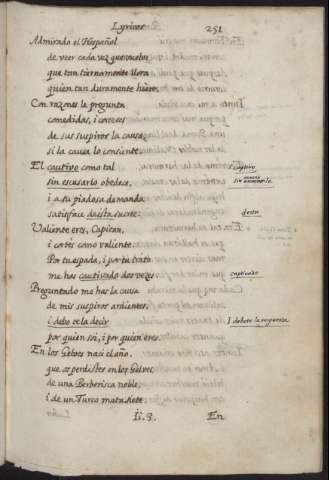 Lyricos
251
Admirado el Hespañol
de veer cada vez que vuelve
que tan tiernamente llora
quien tan duramente hiere,
Con razones le pregunta
comedidas, i corteses
de sus suspiros la causa,
si la causa lo consiente.
El cautivo como tal captivo
sin escusarlo obedece, sin
i a su piadosa demanda
satisface daesta suerte. desta
Valiente eres, Capitan,
i cortès como valiente.
Por tu espada, i por tu trato
me has cautivado dos veces captivado
Preguntado me has la causa
de mis suspiros ardientes,
i debo te la decir I debote la respuesta
por quien soi, i por quien eres.
En los Gelves naci el año,
que os perdistes en los Gelves
de una Berberisca noble,
i de un Turco mata siete.
Ii. 3. En